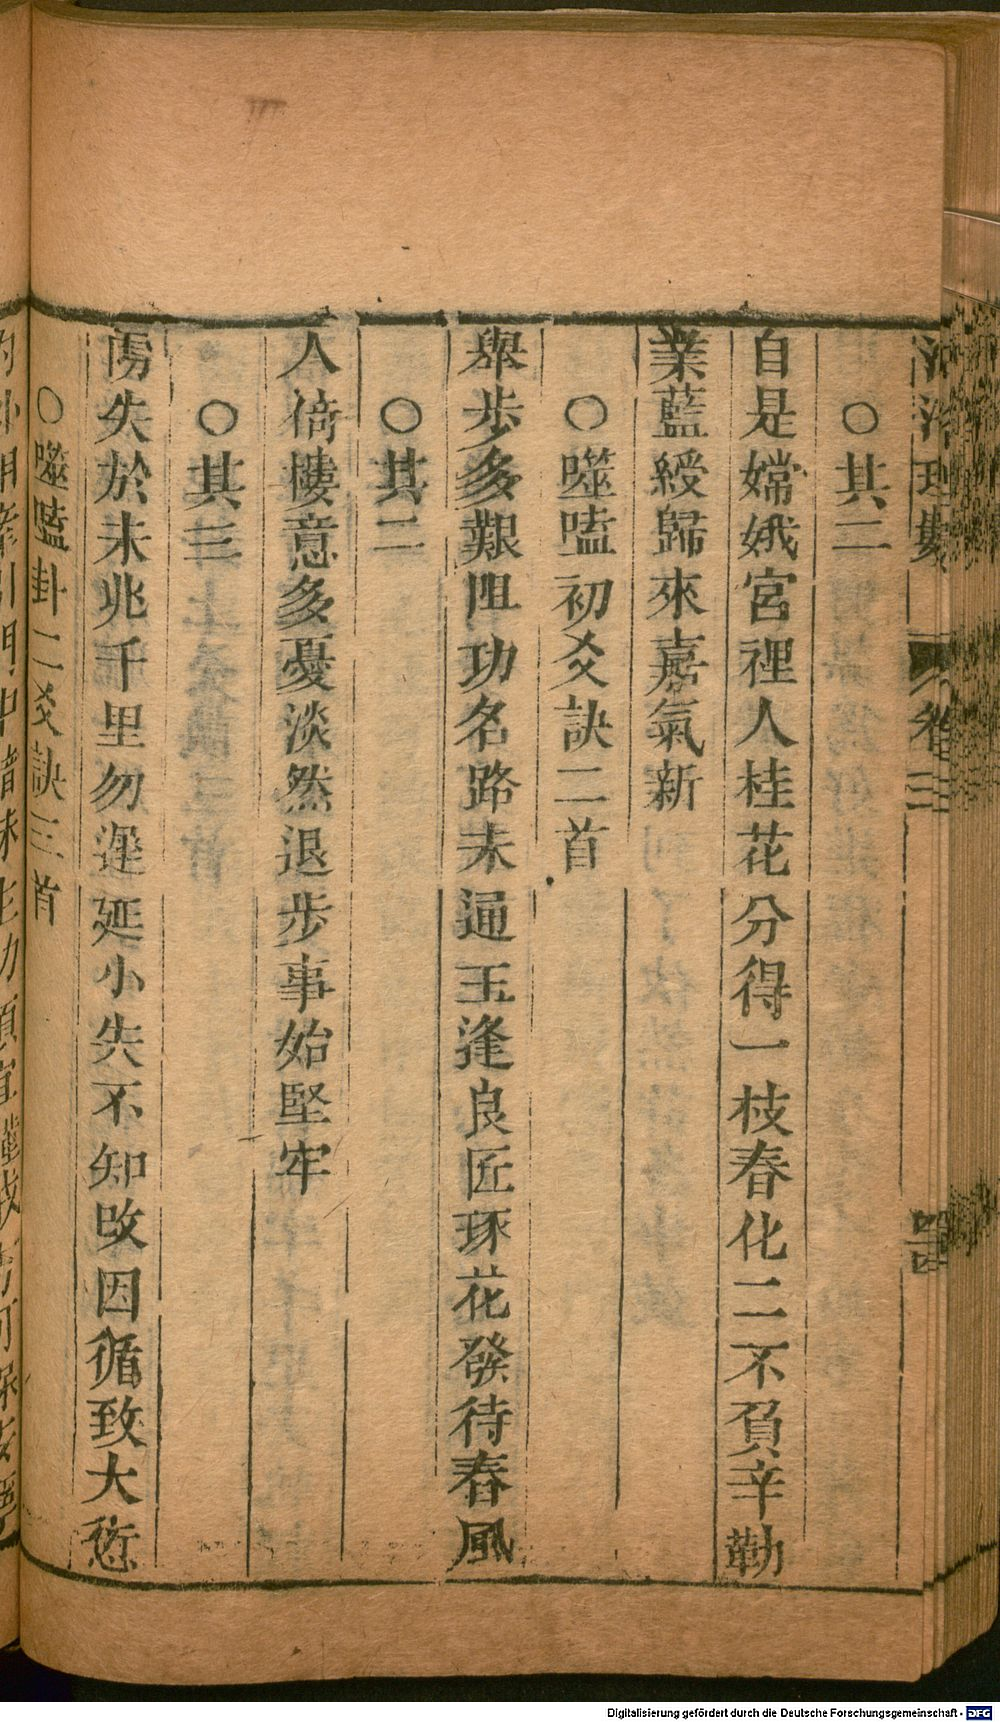 河洛理數 卷三
○其二
自是嫦娥宮裡人桂花分得一枝春化工不負辛勤
業藍綬歸來嘉氣新
○噬嗑初爻訣二首
舉步多艱阻功名路未通玉逢良匠琢花發待春風
○其二
人倚樓意多憂淡然退步事始堅牢
○其三
傷失於未兆千里勿遲延小失不知改因循致大愆
○噬嗑卦二爻訣三首
Digitalisierung gefördert durch die Deutsche Forschungsgemeinschaft - DFG